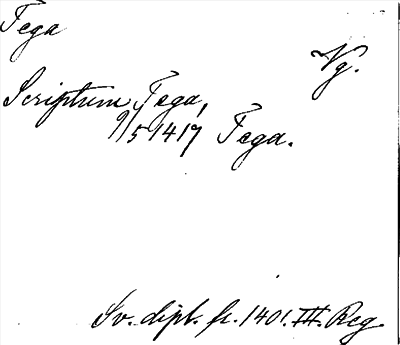 Tega
Vg.
Scriptum Tega,
9/5 1417 Tega.
Sv. dipl. fr. 1401. III. Reg.